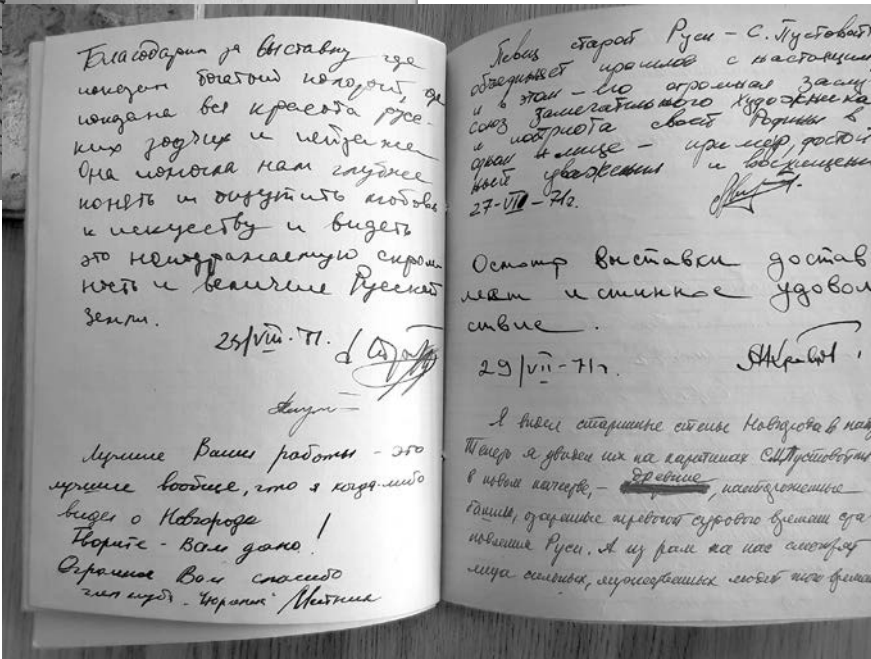 Благодарим за выставку где
показан богатый колорит, где
показана вся красота русс-
ких зодчих и
Она помогла нам глубже
понять и ощутить любовь
к искусству и видеть
это неподражаемую скром
ность и величие Русской
земли.
29/VIII-71.
Лучшие Ваши работы - это
лучшие вообще, что я когда-либо
видел о Новгороде
Творите - Вам дано!
Огромное Вам спасибо
Певец старой Руси - С. Пустовойт
объединяет прошлое с настоящим
и в этом - его огромная заслу
союз замечательного художника
и патриота своей Родины в
одном лице - пример, достой
ный уважения и восхищени
27-VII-71г.
Осмотр выставки достав
ляет истинное удовол
ствие.
29/VII-71г.
Я видел старинные стены Новгорода в нат
Теперь я увидел их на картинах С.И.Пустовойтова
в новом качестве, - древние, настороженные
башни, озаренные тревогой сурового времени ста
новления Руси. А из рам на нас смотрят
лица сильных, мужественных людей того времени